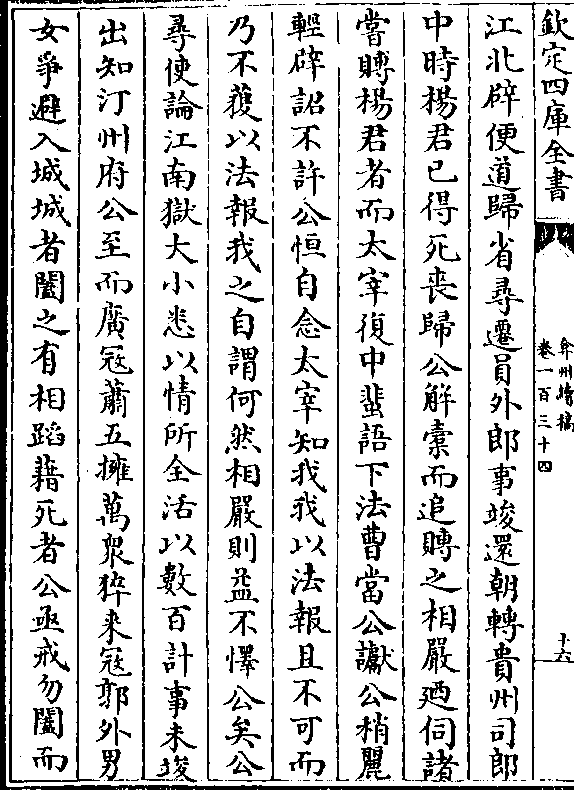 欽定四庫全書
弇州續稿
卷一百三十四
十六
江北辟便道歸省尋遷員外郎事竣還朝轉貴州司郎
中時楊君已得死喪歸公解橐而追賻之相嚴廼伺諸
嘗賻楊君者而太宰復中蜚語下法曹當公讞公稍麗
輕辟詔不許公恒自念太宰知我我以法報且不可而
乃不獲以法報我之自謂何然相嚴則益不懌公矣公
尋使論江南獄大小悉以情所全活以數百計事未竣
出知汀州府公至而廣寇蕭五擁萬衆猝来寇郭外男
女爭避入城城者闔之有相蹈藉死者公亟戒勿闔而